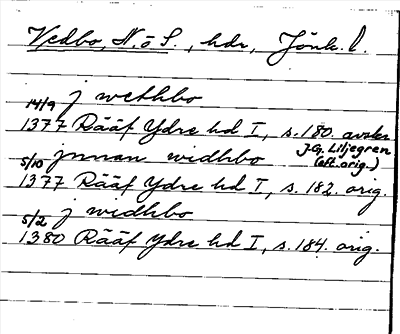 Vedbo, N. o S., hdr, Jönk. l.
j wethbo
14/9 1377 Rääf Ydre hd I, s. 180. avskr.
J.G. Liljegren (eft. orig.)
jnnan widhbo
5/10 1377 Rääf Ydre hd I, s. 182. orig.
j widhbo
5/2 1380 Rääf Ydre hd I, s. 184. orig.